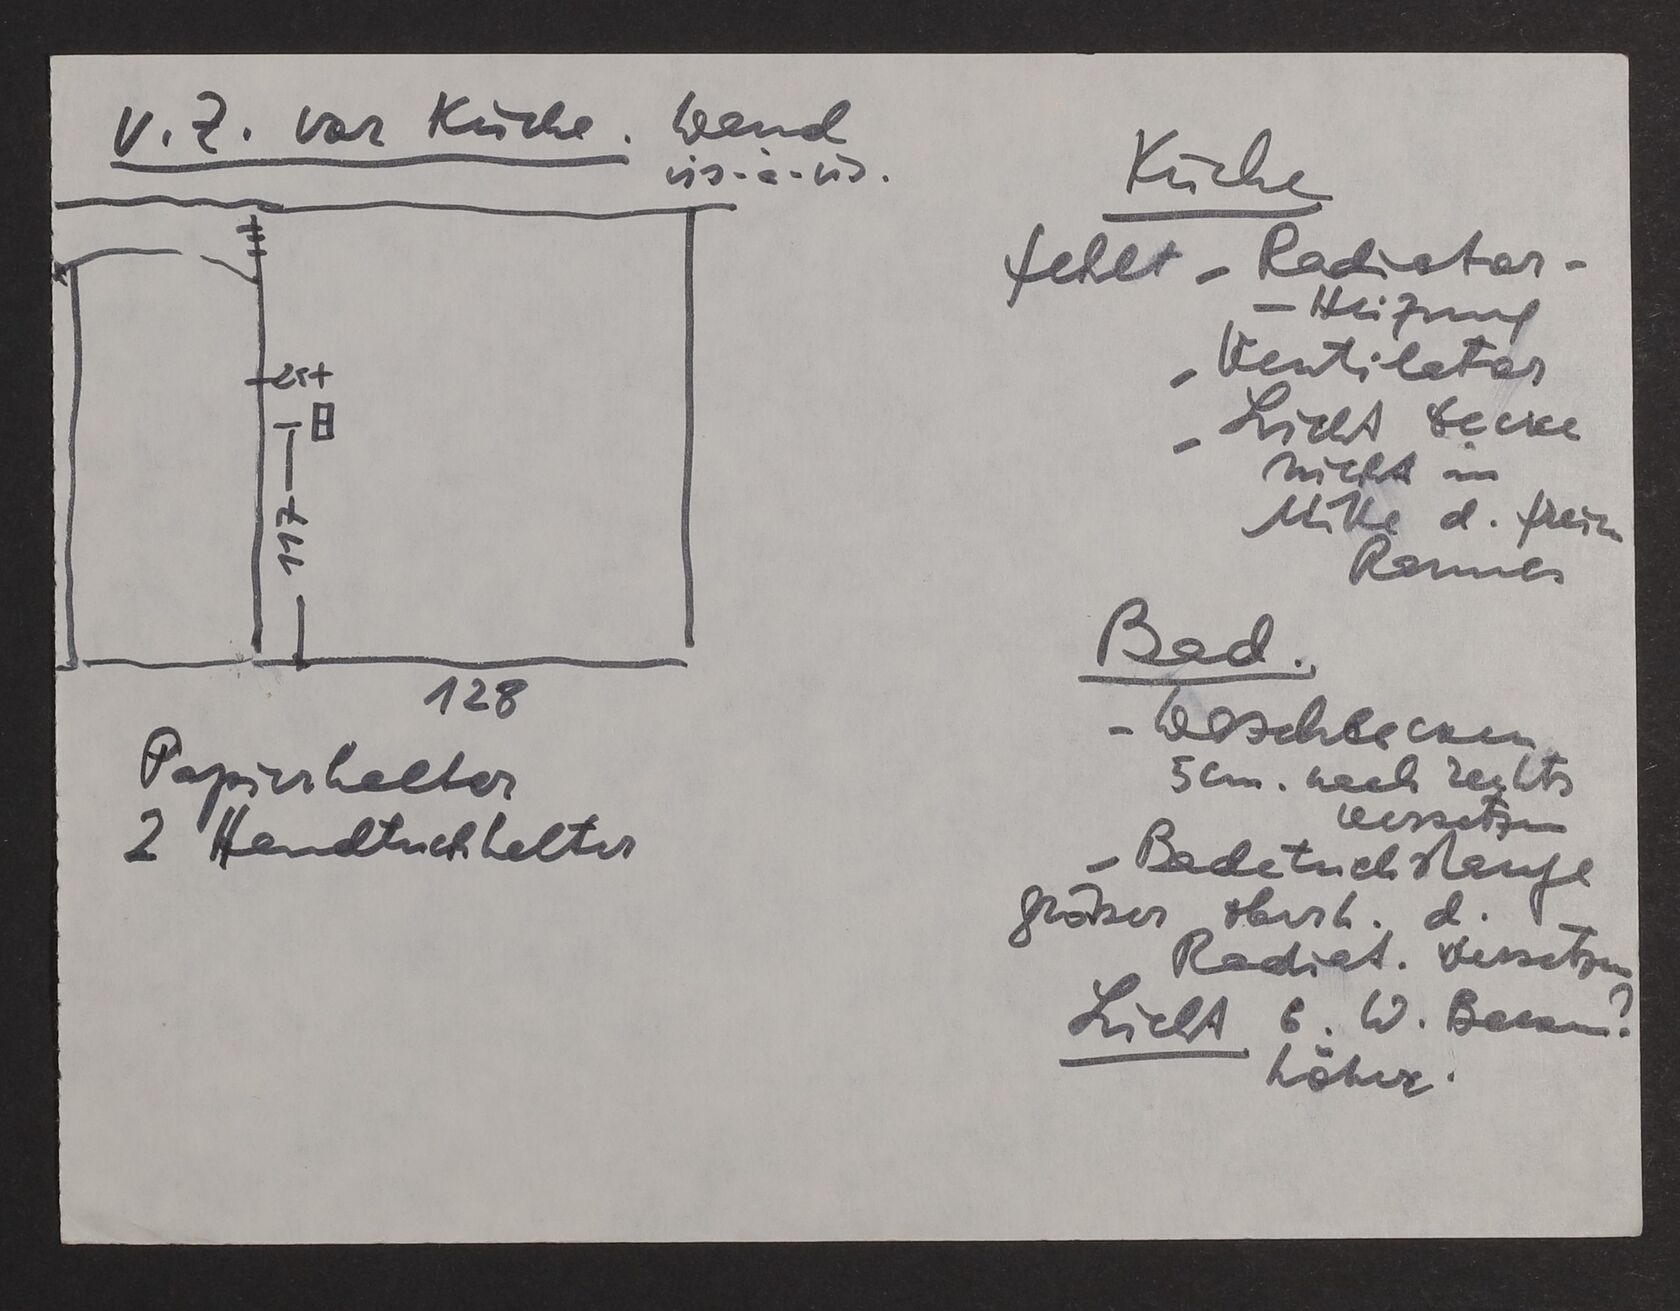 V.Z. vor Küche. Wand
vis-à-vis.
25
117
128
Papierhalter
2 Handtuchhalter
Küche
fehlt - Radiator-
- Heizung
- Ventilator
- Licht Decke
nicht in
Mitte d. freien
Raumes
Bad.
- Waschbecken
5 cm. nach rechts
versetzen
- Badetuchstange
größer oberh. d.
Radiat. versetzen
Licht b. W. Becken?
höher.